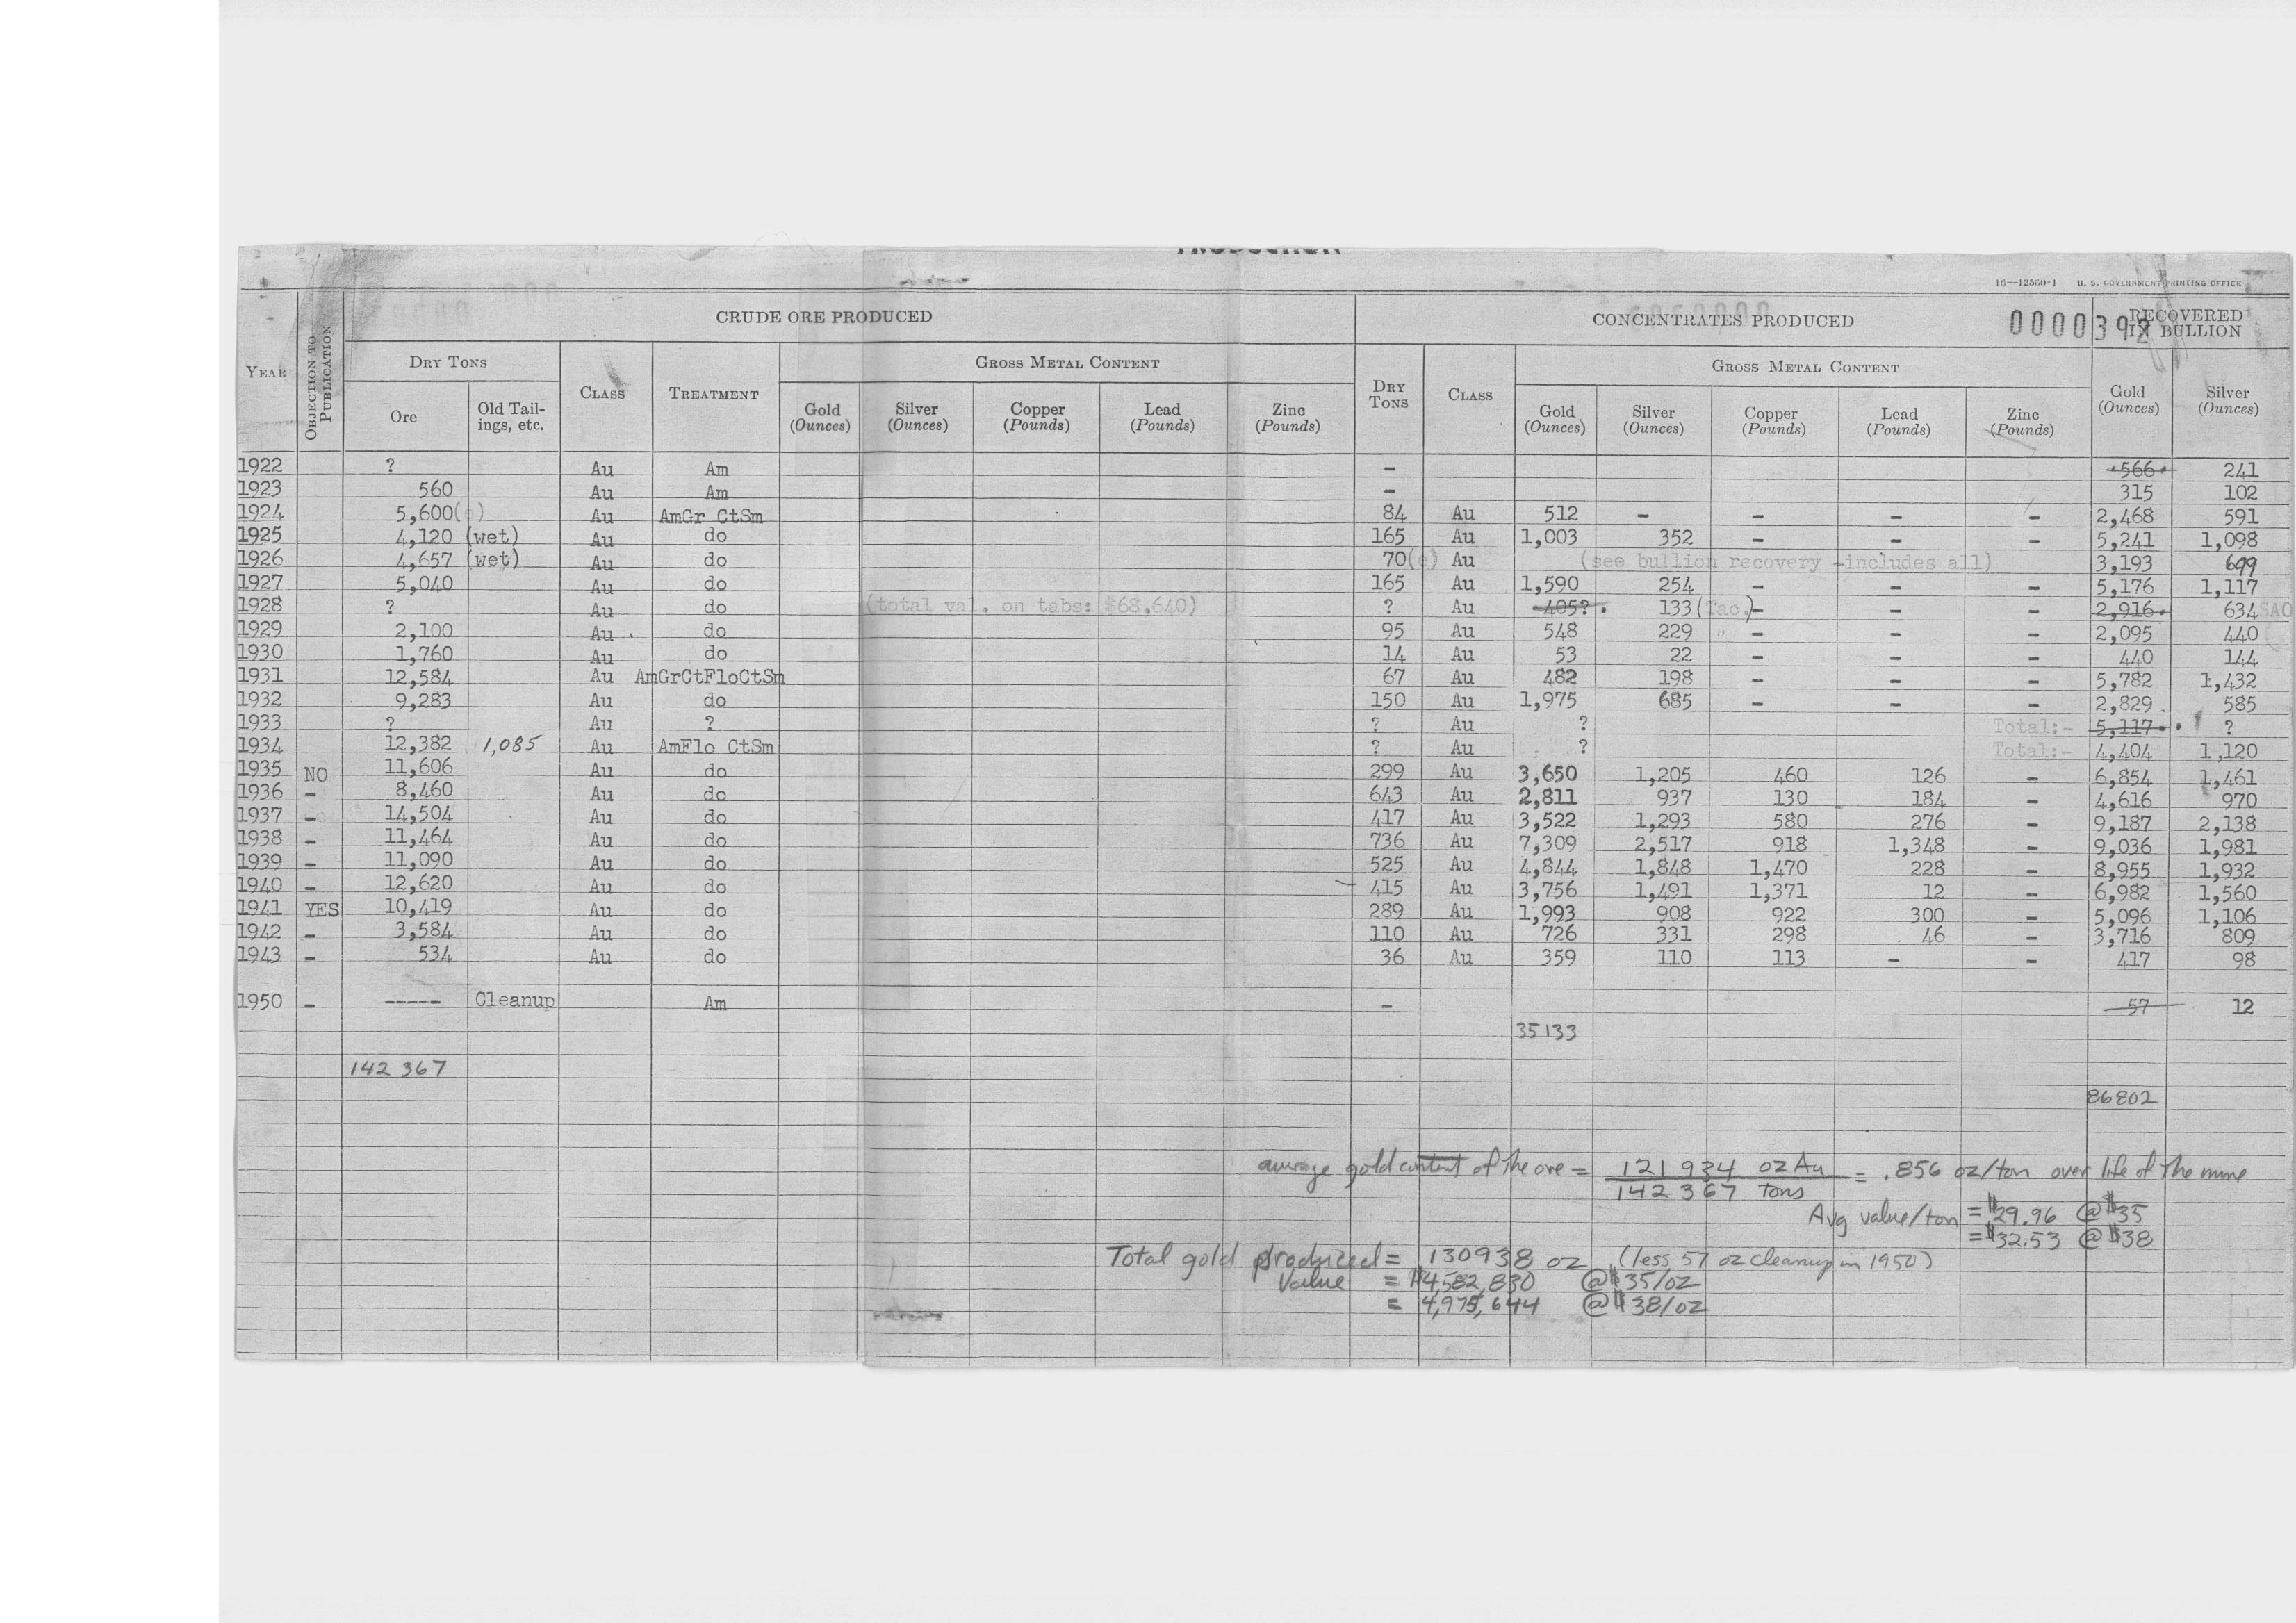 16—12569-1 U. S. GOVERNMENT PRINTING OFFICE
CRUDE ORE PRODUCED CONCENTRATES PRODUCED 0000392 RECOVERED IN BULLION
YEAR OBJECTION TO PUBLICATION DRY TONS CLASS TREATMENT GROSS METAL CONTENT DRY TONS CLASS GROSS METAL CONTENT Gold (Ounces) Silver (Ounces)
Ore Old Tailings, etc. Gold (Ounces) Silver (Ounces) Copper (Pounds) Lead (Pounds) Zinc (Pounds) Gold (Ounces) Silver (Ounces) Copper (Pounds) Lead (Pounds) Zinc (Pounds)
1922 ? Au Am - 566 241
1923 560 Au Am - 315 102
1924 5,600(e) Au AmGr CtSm 84 Au 512 - - - - 2,468 591
1925 4,120 (wet) Au do 165 Au 1,003 352 - - - 5,241 1,098
1926 4,657 (wet) Au do 70(e) Au (see bullion recovery -includes all) 3,193 699
1927 5,040 Au do 165 Au 1,590 254 - - - 5,176 1,117
1928 ? Au do (total val. on tabs: $68,640) ? Au 405? 133(Tac.)- - - 2,916 634SAC
1929 2,100 Au do 95 Au 548 229 - - - 2,095 440
1930 1,760 Au do 14 Au 53 22 - - - 440 144
1931 12,584 Au AmGrCtFloCtSm 67 Au 482 198 - - - 5,782 1,432
1932 9,283 Au do 150 Au 1,975 685 - - - 2,829 585
1933 ? Au ? ? Au ? Total:- 5,117 ?
1934 12,382 1,085 Au AmFlo CtSm ? Au ? Total:- 4,404 1,120
1935 NO 11,606 Au do 299 Au 3,650 1,205 460 126 - 6,854 1,461
1936 - 8,460 Au do 643 Au 2,811 937 130 184 - 4,616 970
1937 - 14,504 Au do 417 Au 3,522 1,293 580 276 - 9,187 2,138
1938 - 11,464 Au do 736 Au 7,309 2,517 918 1,348 - 9,036 1,981
1939 - 11,090 Au do 525 Au 4,844 1,848 1,470 228 - 8,955 1,932
1940 - 12,620 Au do 415 Au 3,756 1,491 1,371 12 - 6,982 1,560
1941 YES 10,419 Au do 289 Au 1,993 908 922 300 - 5,096 1,106
1942 - 3,584 Au do 110 Au 726 331 298 46 - 3,716 809
1943 - 534 Au do 36 Au 359 110 113 - - 417 98
1950 - ----- Cleanup Am - 57 12
35133
142 367
86802
average gold content of the ore = 121 934 oz Au / 142 367 Tons = .856 oz/ton over life of the mine
Avg value/ton = $29.96 @ $35
= $32.53 @ $38
Total gold produced = 130938 oz (less 57 oz cleanup in 1950)
Value = $4,582,830 @ $35/oz
= 4,975,644 @ $38/oz